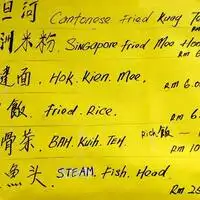 旦河 Cantonese fried Kuay T
洲米粉. Singapore fried Mee Hoo
RM 6
建面. Hok. Kien. Mee.
RM 6.0
飯. fried. Rice.
RM 6.0
骨茶. BAH. Kuih. TEH. rich.飯 –
RM 10
魚头. STEAM. Fish. Head.
RM 25